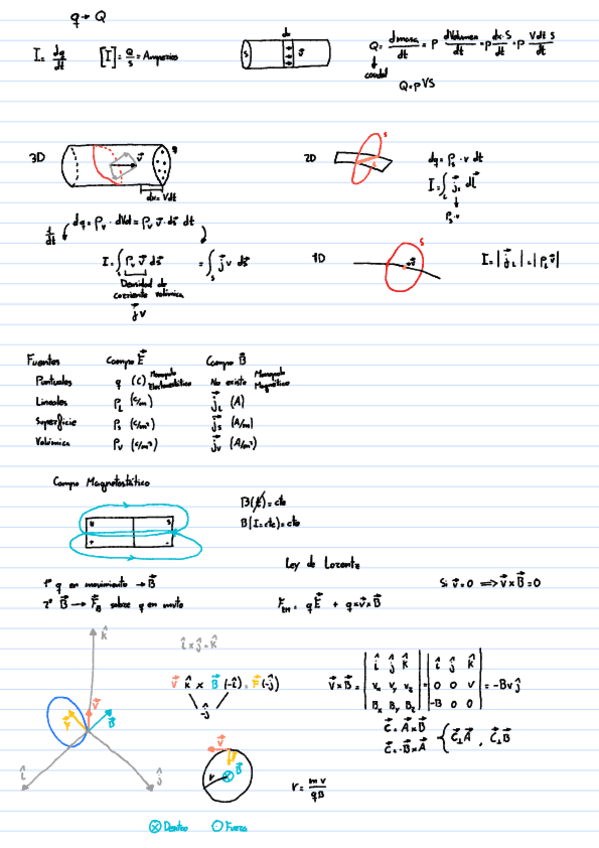 q → Q
I = dq/dt   [I] = Q/s = Amperios
dx
S
v⃗
Q = dmasa/dt = ρ dVolumen/dt = ρ dx·S/dt = ρ Vdt S/dt
caudal
Q = ρVS
3D
v⃗
S
dx = Vdt
2D
S
dq = ρs · v dt
I = ∫L j⃗s dl⃗
ρs·v
1/dt
dq = ρv · dVol = ρv v⃗ · ds⃗ dt
I = ∫s ρv v⃗ ds⃗ = ∫s j⃗v ds⃗
Densidad de
corriente volúmica
j⃗v
1D
S
v⃗
I = |j⃗L| = |ρL v⃗|
Fuentes   Campo E⃗   Campo B⃗
Puntuales   q (C) Monopolo Electrostático   No existe Monopolo Magnético
Lineales   ρL (C/m)   j⃗L (A)
Superficie   ρs (C/m²)   j⃗s (A/m)
Volúmica   ρv (C/m³)   j⃗v (A/m²)
Campo Magnetostático
B(t̸) = cte
B(I = cte) = cte
Ley de Lorentz
1º q en movimiento → B⃗
2º B⃗ → F⃗B sobre q en mvto
FEM = qE⃗ + q×v⃗×B⃗
Si v⃗ = 0 ⟹ v⃗×B⃗ = 0
k̂
î × ĵ = k̂
v⃗ k̂ × B⃗ (-î) = F⃗ (-ĵ)
-ĵ
v⃗×B⃗ = |î ĵ k̂| = |î ĵ k̂| = -Bv ĵ
|vx vy vz| |0 0 v|
|Bx By Bz| |-B 0 0|
v⃗
F⃗
B⃗
C⃗ = A⃗×B⃗
C⃗ = -B⃗×A⃗
{ C⃗⊥A⃗ , C⃗⊥B⃗
î
ĵ
v⃗
F⃗
B⃗
r
r = mv/qB
⊗ Dentro   ⊙ Fuera